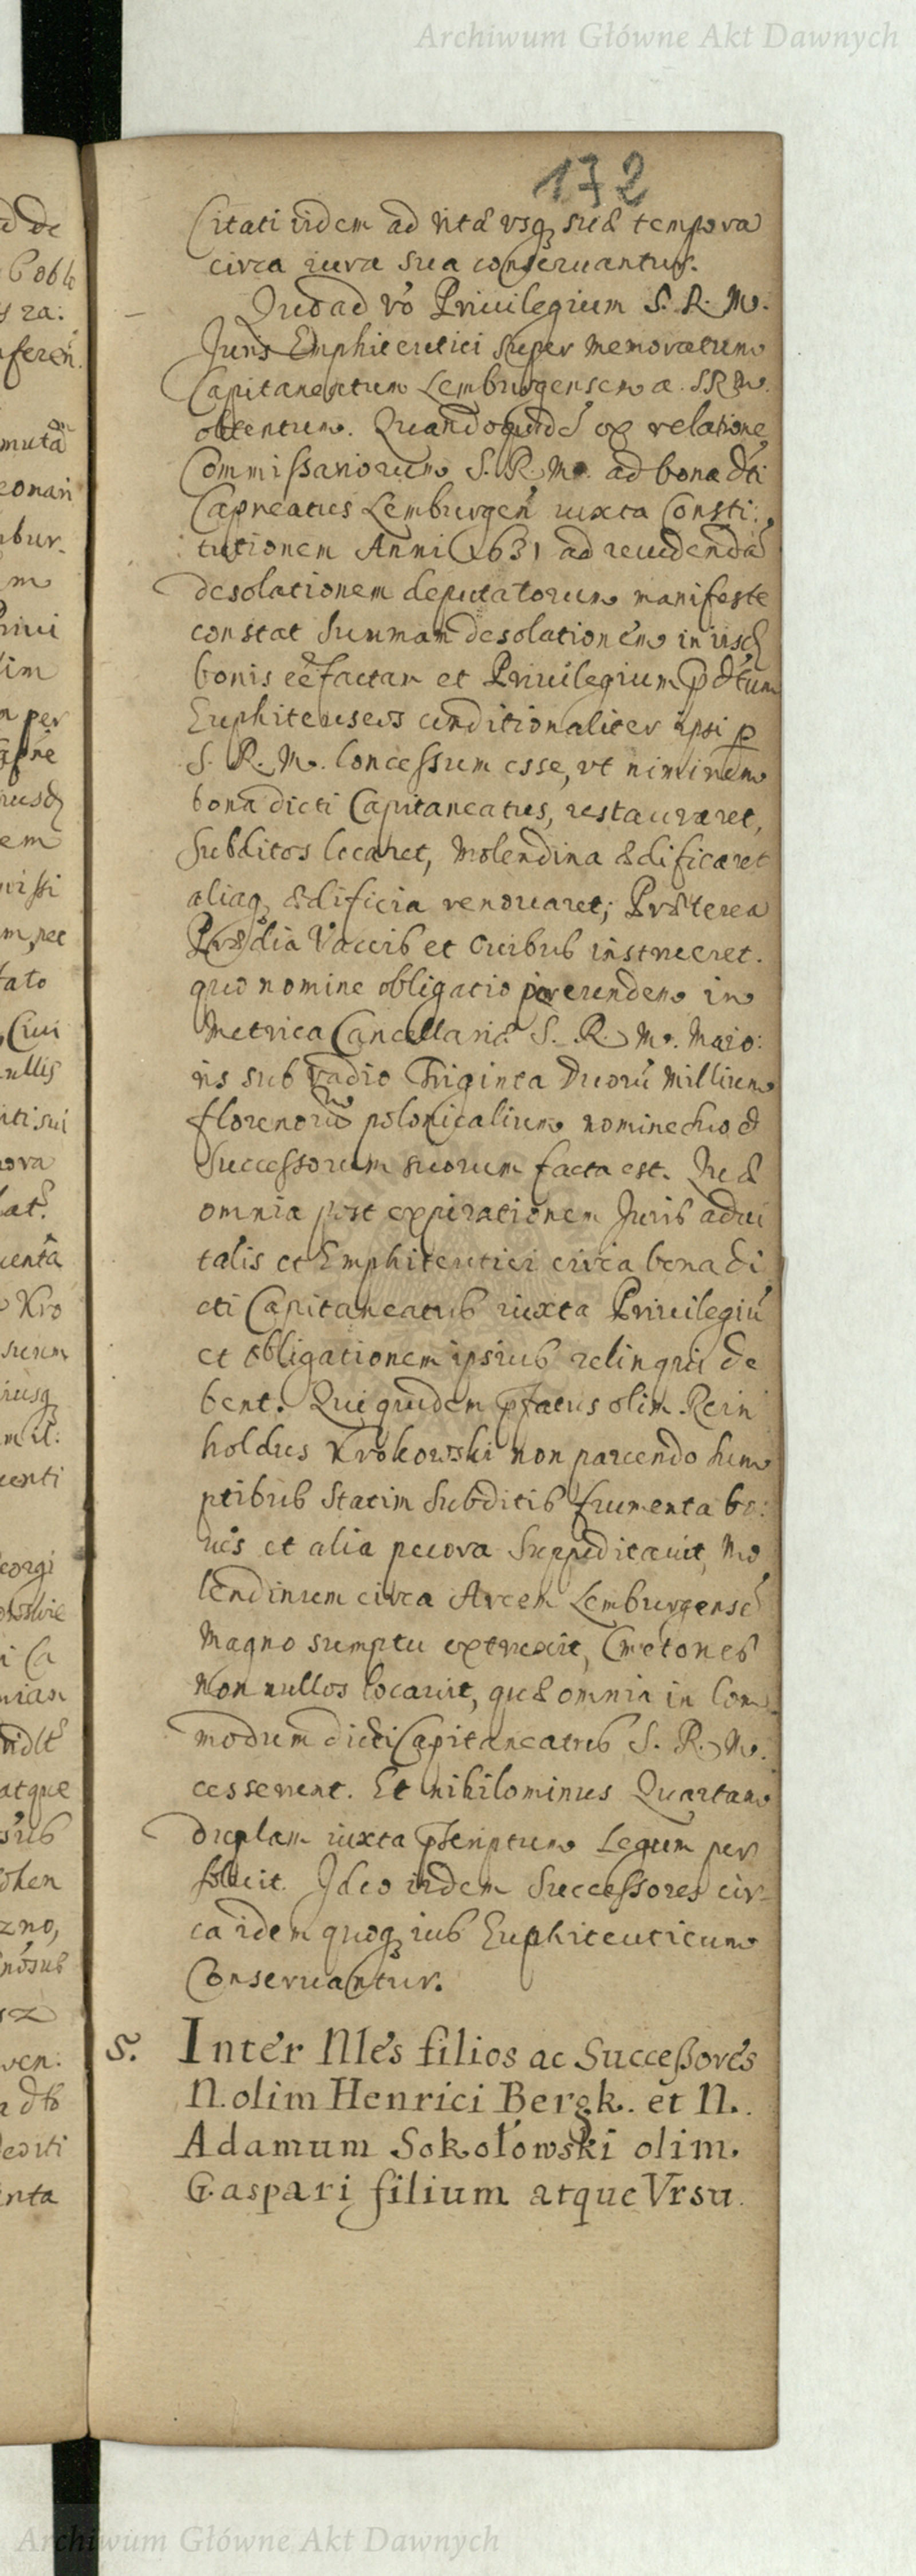 Archiwum Główne Akt Dawnych
172
Citati iidem ad vitæ vsq suæ tempora
circa iura sua conseruantur.
Quoad vo Priuilegium S. R. M.
Juris Emphiteutici super memoratum
Capitaneatum Lemburgensem a. S R M.
obtentum. Quandoquidē ex relatione
Commissariorum S. R. M. ad bona dti
Capneatus Lemburgen̄ iuxta Consti:
tutionem Anni 1631 ad reuidendā
desolationem deputatorum manifeste
constat Summam desolationem in iisd
bonis eē factam et Priuilegium pdtum
Emphiteuseos conditionaliter ipsi p
S. R. M. Concessum esse, vt nimirum
bona dicti Capitaneatus, restauraret,
Subditos locaret, Molendina ædificaret
aliaq ædificia renouaret; Præterea
Prædia Vaccis et Ouibus instrueret.
quo nomine obligatio in
Metrica Cancellariæ S. R. M. Maio:
ris sub vadio Triginta Duorū Millium
florenorū polonicalium nomine suo &
Successorum suorum facta est. Quæ
omnia post expirationem Juris adui
talis et Emphiteutici circa bona di
cti Capitaneatus iuxta Priuilegiū
et obligationem ipsius relinqui de
bent. Qui quidem pfatus olim Rein
holdus Krokowski non parcendo sum
ptibus Statim Subditis frumenta bo:
ues et alia pecora Suppeditauit, Mo
lendinum circa Arcem Lemburgensē
Magno sumptu extruxit, Cmetones
Non nullos locauit, quæ omnia in Com
modum dicti Capitaneatus S. R. M.
cesserunt. Et nihilominus Quartam
duplam iuxta pscriptum Legum per
soluit. Ideo iidem Successores cir
ca idem quoq ius Emphiteuticum
Conseruantur.
5. Inter Nles filios ac Successores
N. olim Henrici Bergk. et N.
Adamum Sokołowski olim.
Gaspari filium atque Vrsu
Archiwum Główne Akt Dawnych